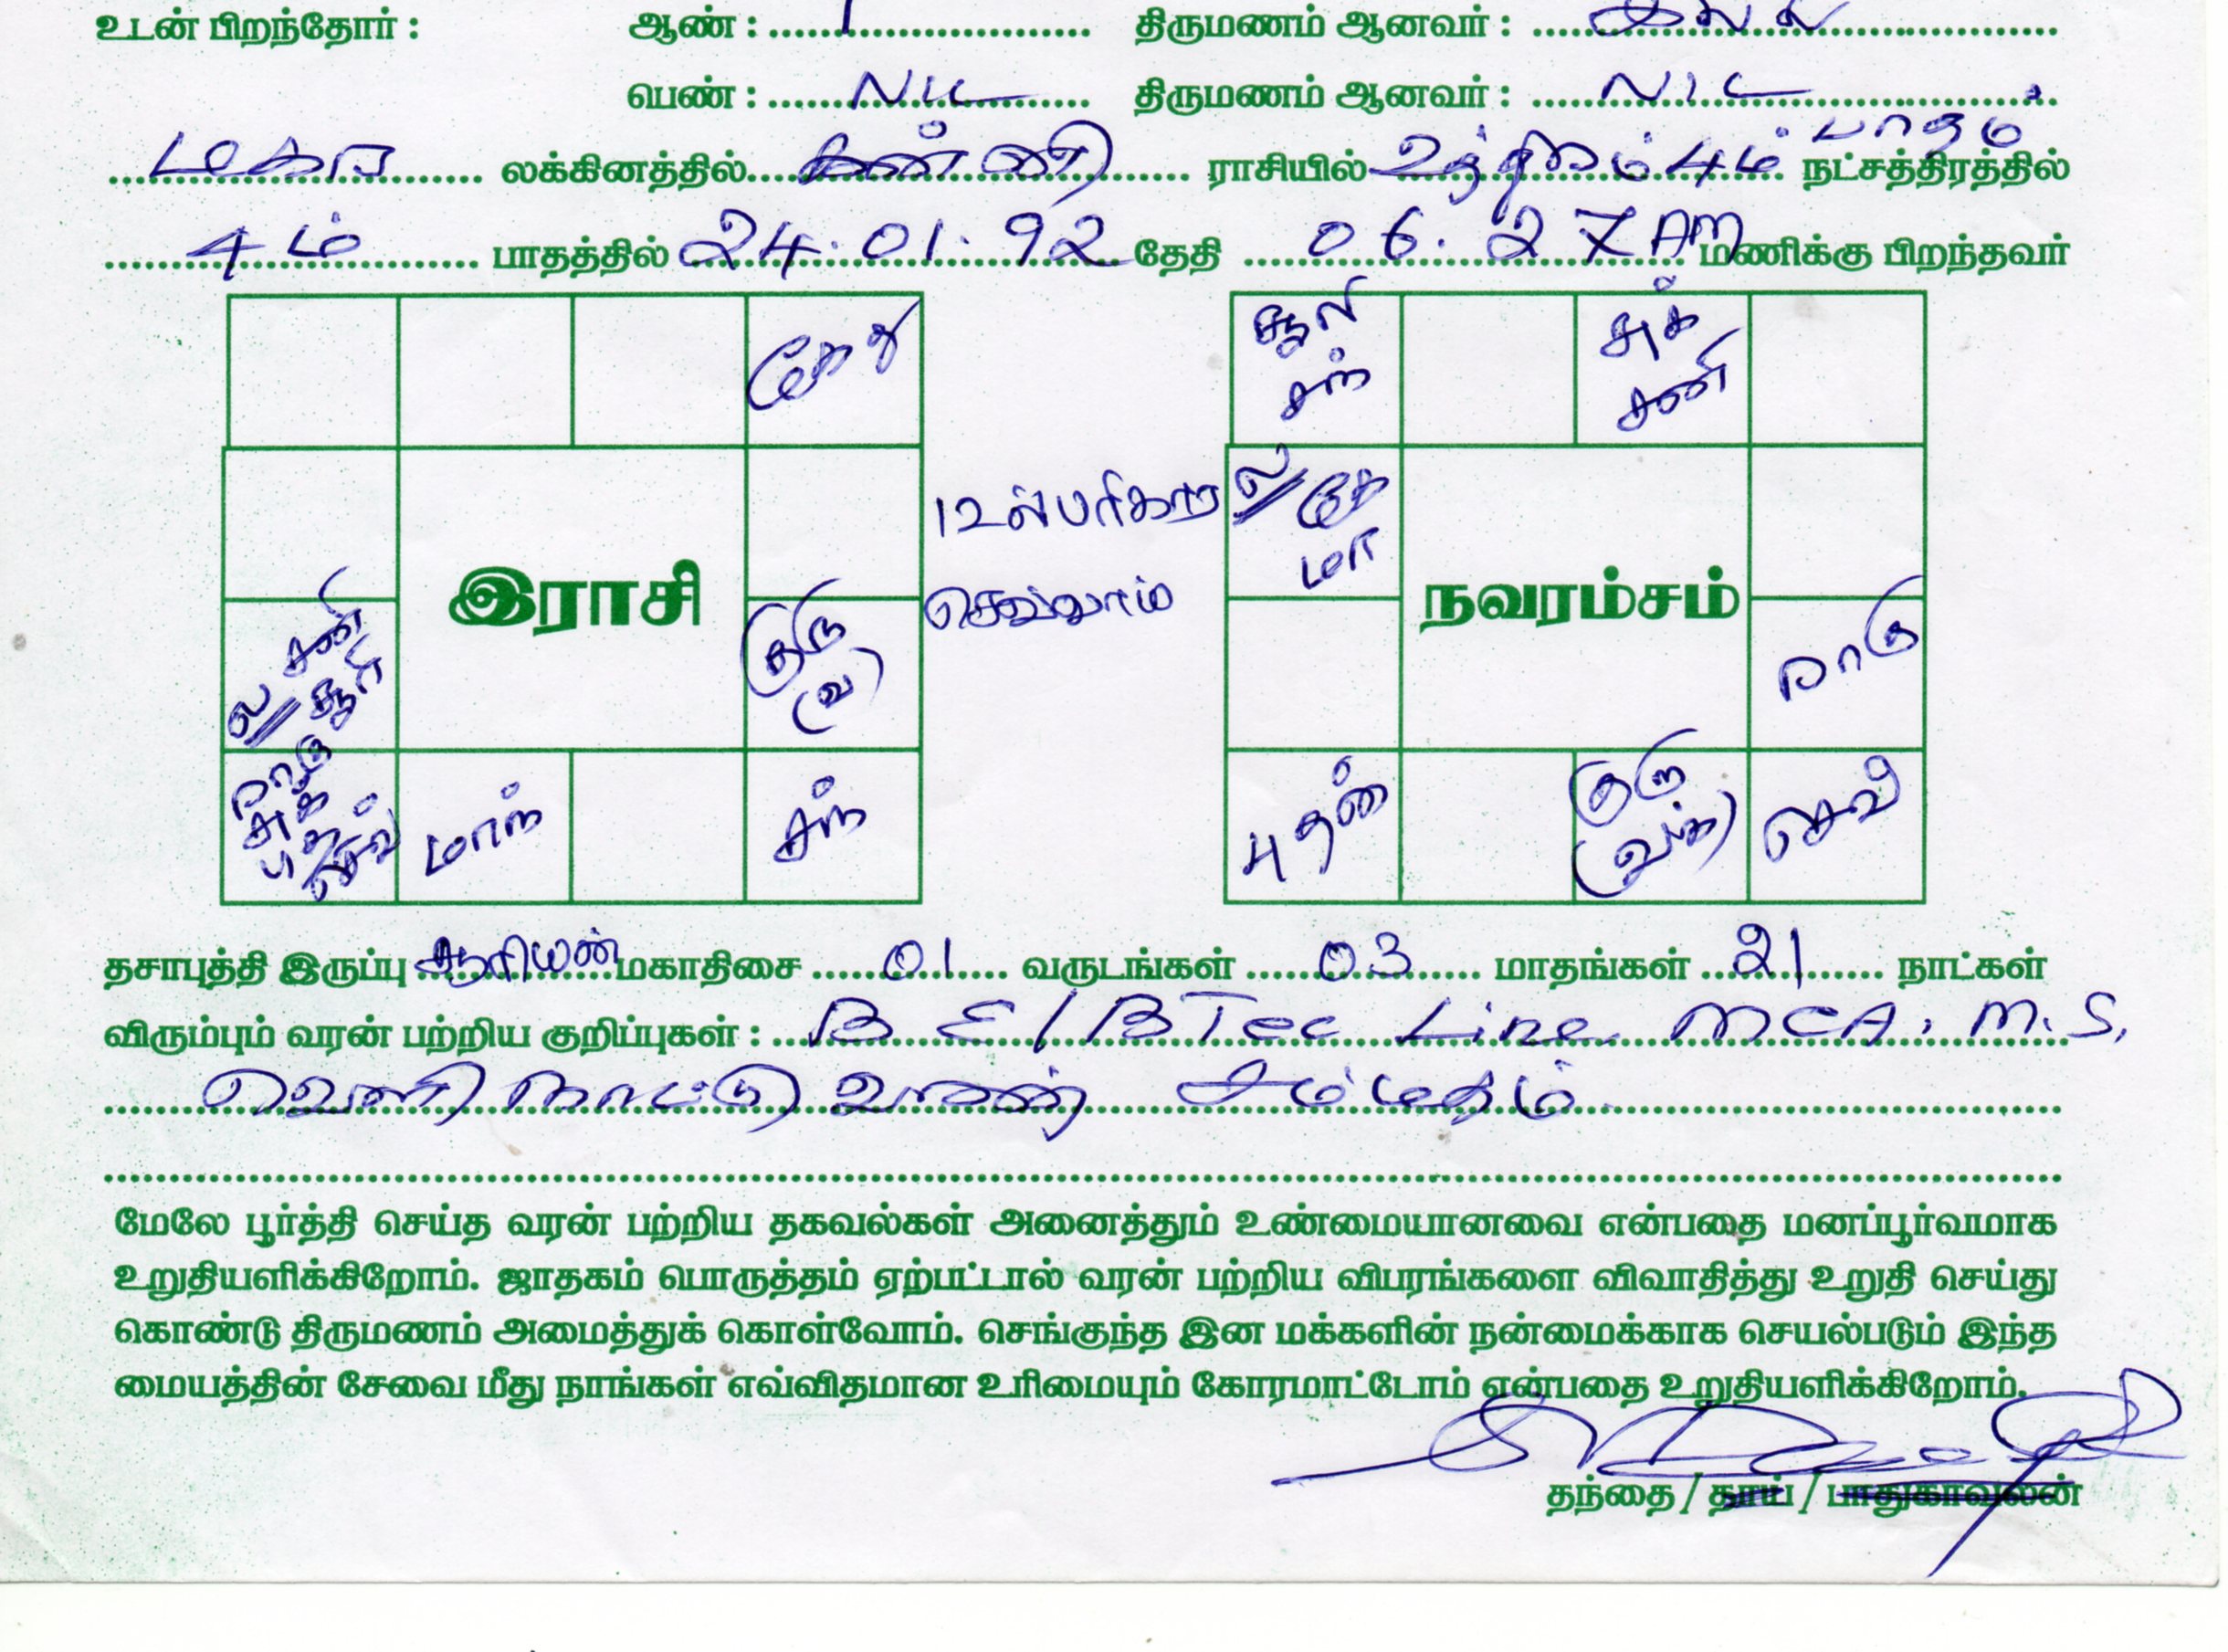 உடன் பிறந்தோர் : ஆண் : 1 திருமணம் ஆனவர் :
பெண் : NIL திருமணம் ஆனவர் : NIL
மகர லக்கினத்தில் கன்னி ராசியில் உத்திரம் 4ம் பாதம் நட்சத்திரத்தில்
4ம் பாதத்தில் 24.01.92 தேதி 06.27 AM மணிக்கு பிறந்தவர்
கேது
சூரி
சந்
சுக்
சனி
12ல் பரிகார
செவ்வாய்
ல/ கே
மா
இராசி
நவரம்சம்
சனி
ல/ சூரி
குரு
(வ)
ராகு
ராகு
சுக்
புத
செவ்
மாந்
சந்
புதன்
குரு
(வக்)
செவ்
தசாபுத்தி இருப்பு சூரியன் மகாதிசை 01 வருடங்கள் 03 மாதங்கள் 21 நாட்கள்
விரும்பும் வரன் பற்றிய குறிப்புகள் : B E / BTec Line MCA, M.S,
வெளி நாட்டு வரன் சம்மதம்
மேலே பூர்த்தி செய்த வரன் பற்றிய தகவல்கள் அனைத்தும் உண்மையானவை என்பதை மனப்பூர்வமாக
உறுதியளிக்கிறோம். ஜாதகம் பொருத்தம் ஏற்பட்டால் வரன் பற்றிய விபரங்களை விவாதித்து உறுதி செய்து
கொண்டு திருமணம் அமைத்துக் கொள்வோம். செங்குந்த இன மக்களின் நன்மைக்காக செயல்படும் இந்த
மையத்தின் சேவை மீது நாங்கள் எவ்விதமான உரிமையும் கோரமாட்டோம் என்பதை உறுதியளிக்கிறோம்.
தந்தை / தாய் / பாதுகாவலன்